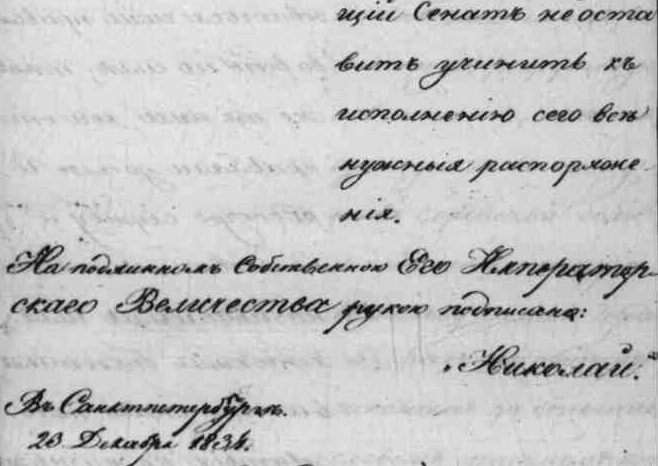 щій Сенатъ не оста
витъ учинить къ
исполненію сего всѣ
нужныя распоряже-
нія.
На подлинномъ Собственною Его Император-
скаго Величества рукою подписано:
„Николай.“
Въ Санктпетербургѣ.
23 Декабря 1834.